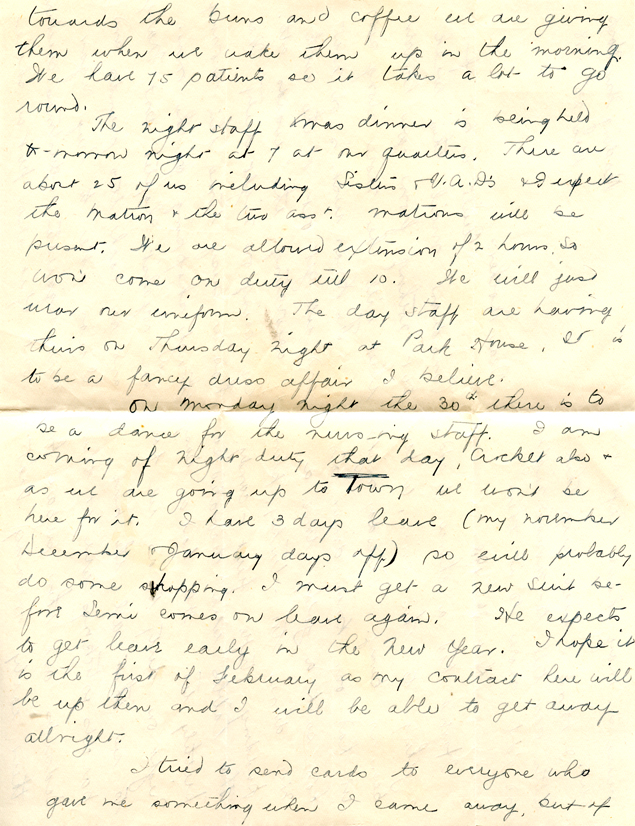 towards the buns and coffee we are giving
them when we wake them up in the morning.
We have 75 patients so it takes a lot to go
round.
The night staff Xmas dinner is being held
to-morrow night at 7 at our quarters. There are
about 25 of us including Sisters & V.A.D's & I expect
the matron & the two asst. matrons will be
present. We are allowed extension of 2 hours. So
won't come on duty till 10. We will just
wear our uniform. The day staff are having
theirs on Thursday night at Park House. It is
to be a fancy dress affair I believe.
On Monday night the 30th there is to
be a dance for the nursing staff. I am
coming of night duty that day, Crocket also &
as we are going up to Town we won't be
here for it. I have 3 days leave (my november
December & January days off) so will probably
do some shopping. I must get a new suit be-
fore Semi comes on leave again. He expects
to get leave early in the New Year. I hope it
is the first of February as my contract here will
be up then and I will be able to get away
allright.
I tried to send cards to everyone who
gave me something when I came away, but if